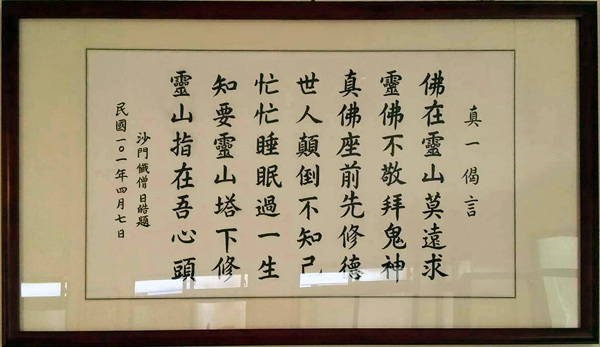 真一偈言
佛在靈山莫遠求
靈佛不敬拜鬼神
真佛座前先修德
世人顛倒不知己
忙忙睡眠過一生
知要靈山塔下修
靈山指在吾心頭
沙門懺僧日皓題
民國一〇一年四月七日